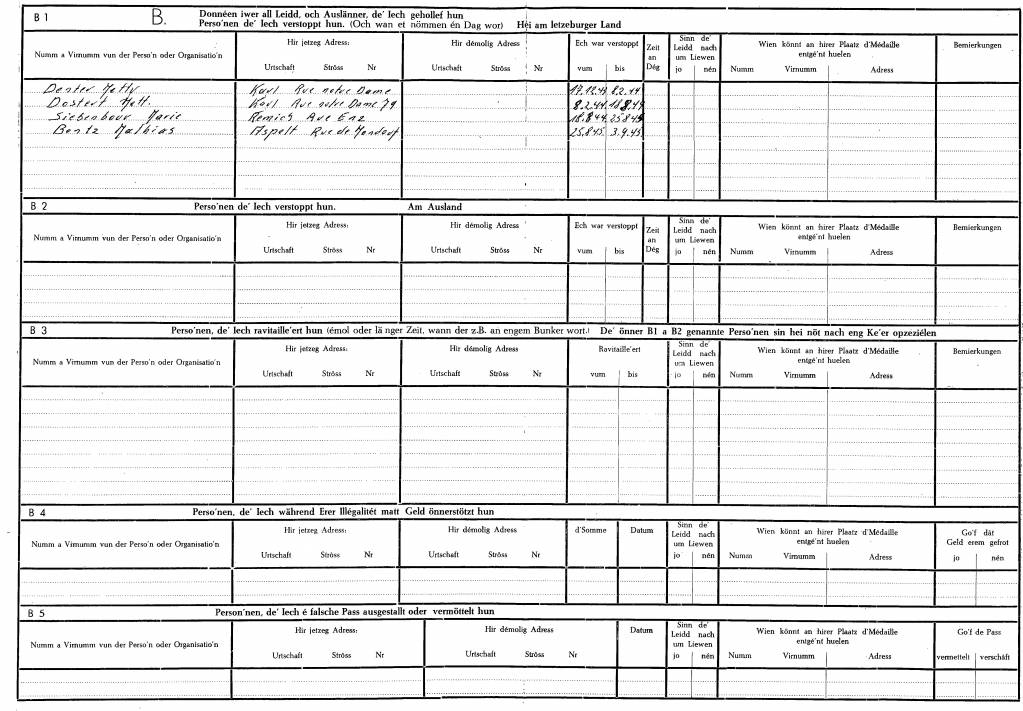 B 1 B. Donnéen iwer all Leidd, och Auslänner, de' Iech gehollef hun
Perso'nen de' Iech verstoppt hun. (Och wan et nömmen én Dag wor) Héi am letzeburger Land
Numm a Virnumm vun der Perso'n oder Organisatio'n Hir jetzeg Adress: Urtschaft Ströss Nr Hir démolig Adress Urtschaft Ströss Nr Ech war verstoppt vum bis Zeit an Dég Sinn de' Leidd nach um Liewen jo nén Wien könnt an hirer Plaatz d'Médaille entgé'nt huelen Numm Virnumm Adress Bemierkungen
Denter Metty Kayl Rue notre Dame 17.12.43 8.2.44
Dostert Matt. Kayl Rue notre Dame 79 8.2.44 18.8.44
Siebenbour Marie Remich Ave Enz 18.8.44 25.8.45
Bentz Mathias Aspelt Rue de Mondorf 25.8.45 3.9.45
B 2 Perso'nen de' Iech verstoppt hun. Am Ausland
Numm a Virnumm vun der Perso'n oder Organisatio'n Hir jetzeg Adress: Urtschaft Ströss Nr Hir démolig Adress Urtschaft Ströss Nr Ech war verstoppt vum bis Zeit an Dég Sinn de' Leidd nach um Liewen jo nén Wien könnt an hirer Plaatz d'Médaille entgé'nt huelen Numm Virnumm Adress
B 3 Perso'nen, de' Iech ravitaille'ert hun (émol oder länger Zeit, wann der z.B. an engem Bunker wort.) De' önner B1 a B2 genannte Perso'nen sin hei nöt nach eng Ke'er opzeziélen
Numm a Virnumm vun der Perso'n oder Organisatio'n Hir jetzeg Adress: Urtschaft Ströss Nr Hir démolig Adress Urtschaft Ströss Nr Ravitaille'ert vum bis Sinn de' Leidd nach um Liewen jo nén Wien könnt an hirer Plaatz d'Médaille entgé'nt huelen Numm Virnumm Adress Bemierkungen
B 4 Perso'nen, de' Iech während Erer Illégalitét matt Geld önnerstötzt hun
Numm a Virnumm vun der Perso'n oder Organisatio'n Hir jetzeg Adress: Urtschaft Ströss Nr Hir démolig Adress Urtschaft Ströss Nr d'Somme Datum Sinn de' Leidd nach um Liewen jo nén Wien könnt an hirer Plaatz d'Médaille entgé'nt huelen Numm Virnumm Adress Go'f dát Geld erem gefrot jo nén
B 5 Person'nen, de' Iech é falsche Pass ausgestallt oder vermöttelt hun
Numm a Virnumm vun der Perso'n oder Organisatio'n Hir jetzeg Adress: Urtschaft Ströss Nr Hir démolig Adress Urtschaft Ströss Nr Datum Sinn de' Leidd nach um Liewen jo nén Wien könnt an hirer Plaatz d'Médaille entgé'nt huelen Numm Virnumm Adress Go'f de Pass vermettelt verschäft